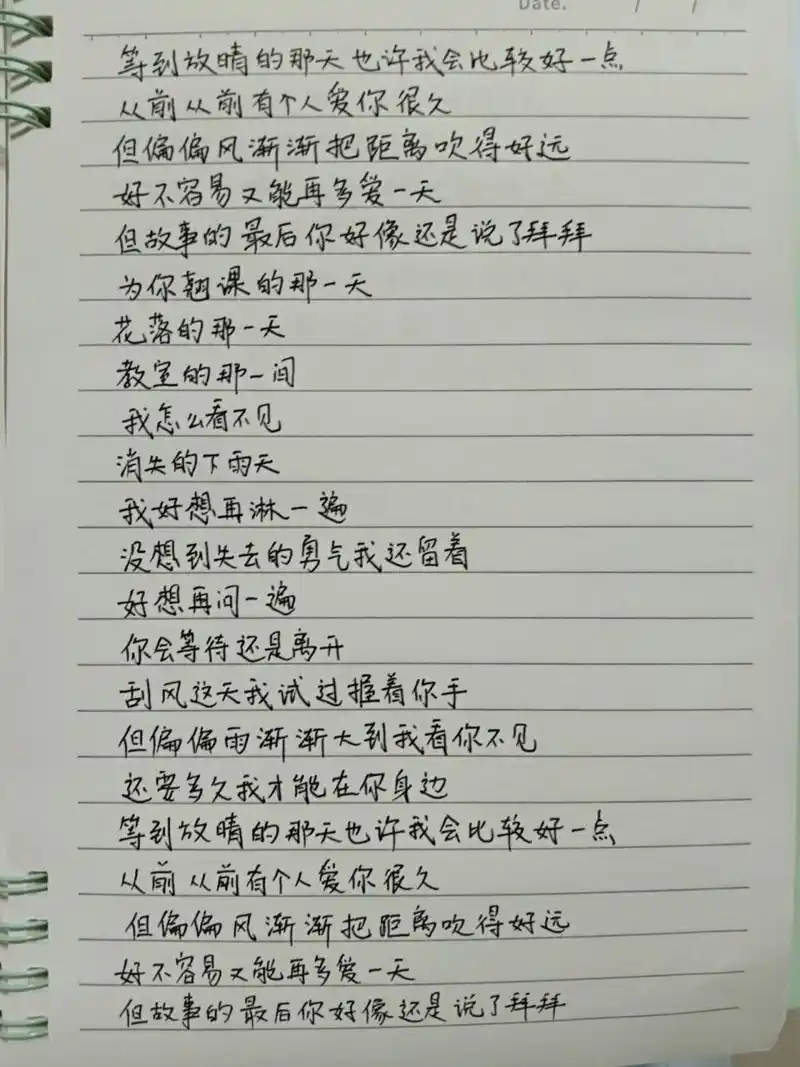 Date. / /
等到放晴的那天也许我会比较好一点
从前从前有个人爱你很久
但偏偏风渐渐把距离吹得好远
好不容易又能再多爱一天
但故事的最后你好像还是说了拜拜
为你翘课的那一天
花落的那一天
教室的那一间
我怎么看不见
消失的下雨天
我好想再淋一遍
没想到失去的勇气我还留着
好想再问一遍
你会等待还是离开
刮风这天我试过握着你手
但偏偏雨渐渐大到我看你不见
还要多久我才能在你身边
等到放晴的那天也许我会比较好一点
从前从前有个人爱你很久
但偏偏风渐渐把距离吹得好远
好不容易又能再多爱一天
但故事的最后你好像还是说了拜拜